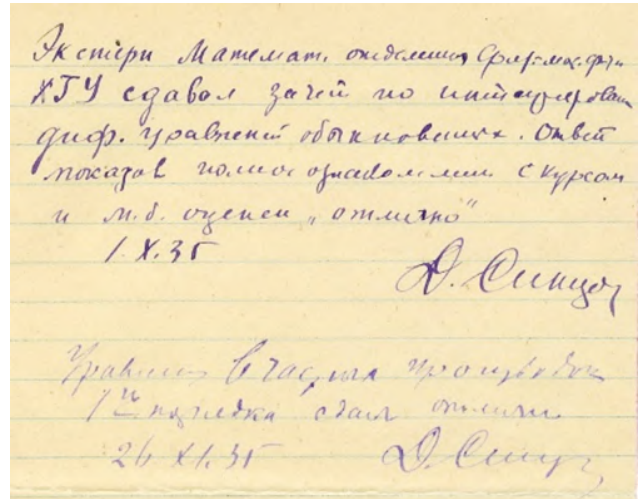 Экстерн Математ. отделения физ.-мех. фак.
ХГУ сдавал зачет по интегрирован
диф. уравнений обыкновенных. Ответ
показав полное ознакомление с курсом
и м. б. оценен „отлично“
1.X.35
Д. Синцов
Уравнения в частных производн
1го порядка сдал отлично
26 XI.35
Д. Синцов